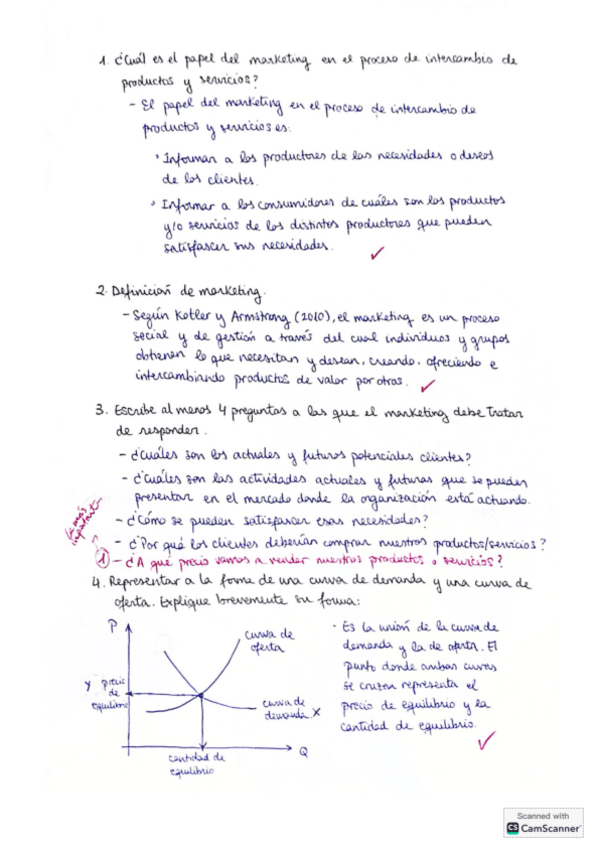 1. ¿Cuál es el papel del marketing en el proceso de intercambio de
productos y servicios?
- El papel del marketing en el proceso de intercambio de
productos y servicios es:
• Informar a los productores de las necesidades o deseos
de los clientes.
• Informar a los consumidores de cuáles son los productos
y/o servicios de los distintos productores que pueden
satisfascer sus necesidades.
2. Definición de marketing.
- Según Kotler y Armstrong (2010), el marketing es un proceso
social y de gestión a través del cual individuos y grupos
obtienen lo que necesitan y desean, creando, ofreciendo e
intercambiando productos de valor por otros.
3. Escribe al menos 4 preguntas a las que el marketing debe tratar
de responder.
- ¿Cuáles son los actuales y futuros potenciales clientes?
- ¿Cuáles son las actividades actuales y futuras que se pueden
presentar en el mercado donde la organización está actuando.
- ¿Cómo se pueden satisfascer esas necesidades?
- ¿Por qué los clientes deberían comprar nuestros productos/servicios?
la más
importante
1 - ¿A qué precio vamos a vender nuestros productos o servicios?
4. Representar a la forma de una curva de demanda y una curva de
oferta. Explique brevemente su forma:
P
curva de
oferta
y precio
de
equilibrio
curva de
demanda x
Q
cantidad de
equilibrio
- Es la unión de la curva de
demanda y la de oferta. El
punto donde ambas curvas
se cruzan representa el
precio de equilibrio y la
cantidad de equilibrio.
Scanned with
CS CamScanner